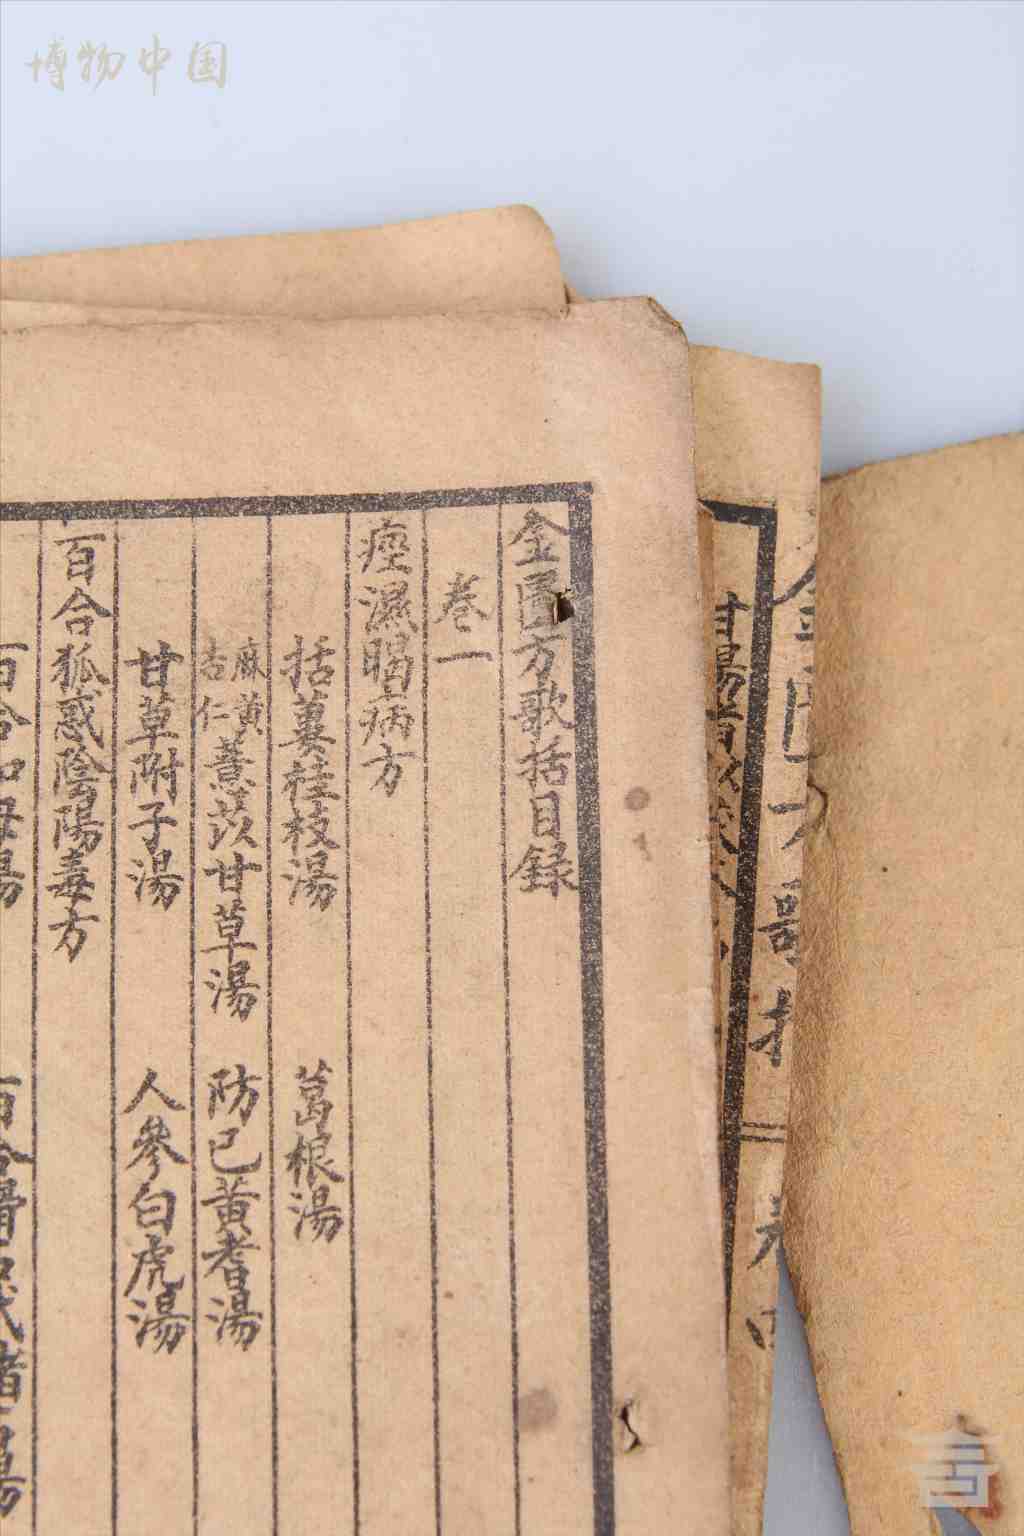 博物中国
金匱方歌括目録
卷一
痙濕暍病方
括蔞桂枝湯 葛根湯
麻黄杏仁薏苡甘草湯 防已黄耆湯
甘草附子湯 人參白虎湯
百合狐惑陰陽毒方
百合知母湯 百合滑